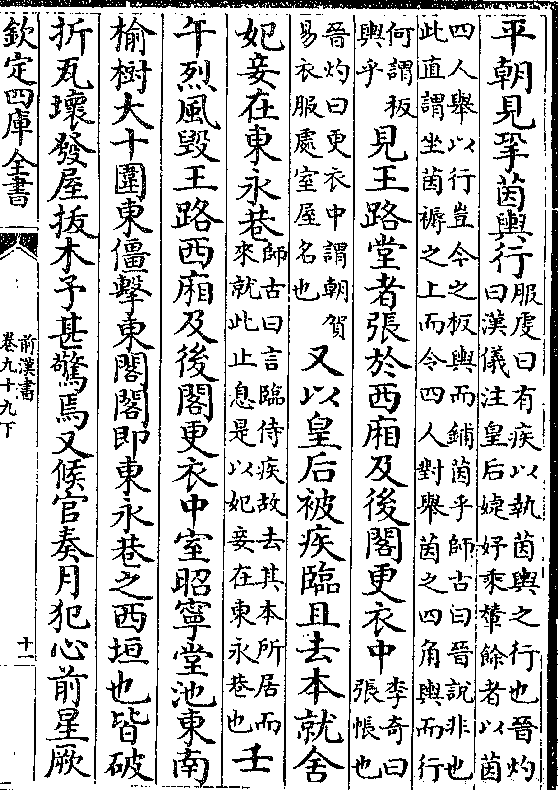 平朝見挈茵輿行服虔曰有疾以執茵輿之行也晉灼曰漢儀注皇后婕妤乘輦餘者以茵
四人舉以行豈今之板輿而鋪茵乎師古曰晉説非也此直謂坐茵褥之上而令四人對舉茵之四角輿而行
何謂板輿乎見王路堂者張於西廂及後閣更衣中李奇曰張帳也
晉灼曰更衣中謂朝賀易衣服處室屋名也又以皇后被疾臨且去本就舍
妃妾在東永巷師古曰言臨侍疾故去其本所居而來就此止息是以妃妾在東永巷也壬
午烈風毁王路西廂及後閣更衣中室昭寧堂池東南
榆樹大十圍東僵擊東閣閣即東永巷之西垣也皆破
折瓦壞發屋拔木予甚驚焉又候官奏月犯心前星厥
欽定四庫全書
前漢書
卷九十九下
十一